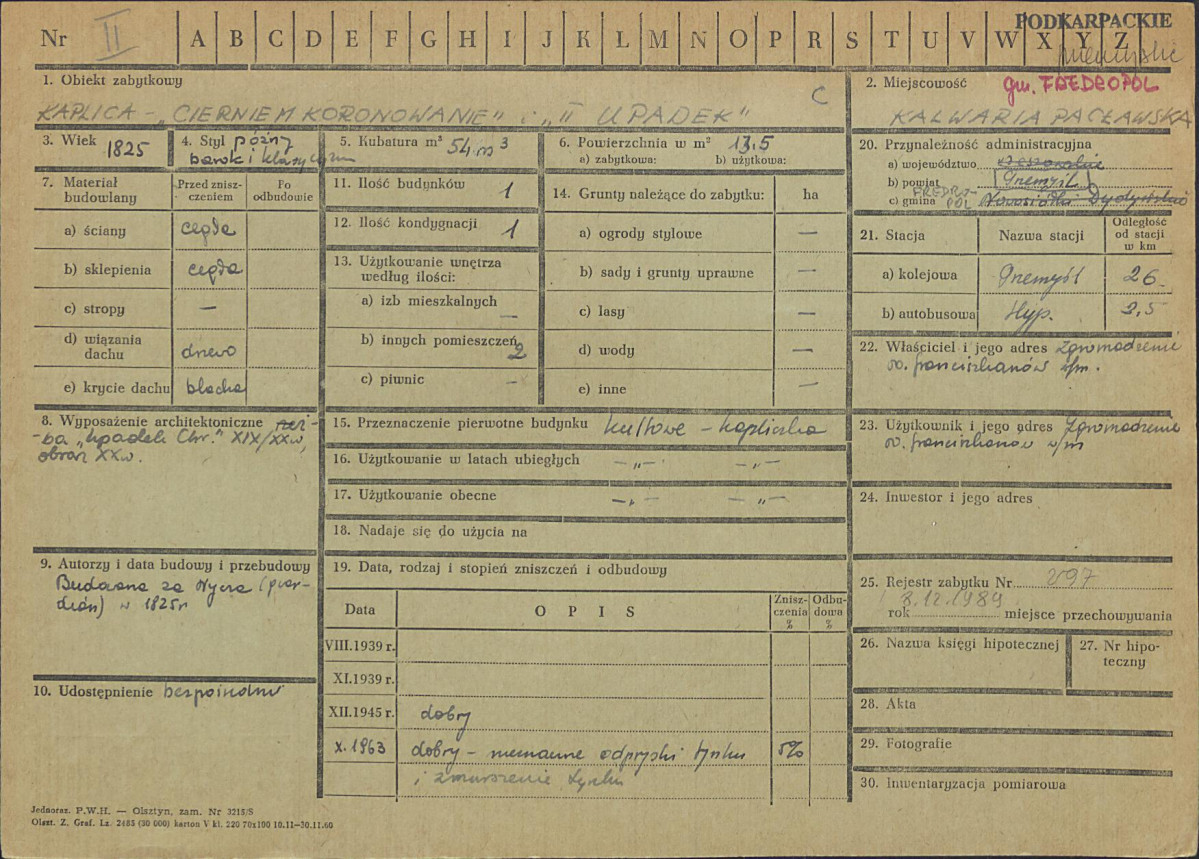 Nr II A B C D E F G H I J K L M N O P R S T U V W X Y Z
PODKARPACKIE
przemyskie
1. Obiekt zabytkowy
C
KAPLICA - „CIERNIEM KORONOWANIE" i „II UPADEK"
2. Miejscowość
gm. FREDROPOL
KALWARIA PACŁAWSKA
3. Wiek 1825
4. Styl późny
barok i klasycyzm
5. Kubatura m³ 54 m3
6. Powierzchnia w m² 13,5
a) zabytkowa: b) użytkowa:
7. Materiał budowlany
Przed zniszczeniem
Po odbudowie
a) ściany cegła
b) sklepienia cegła
c) stropy —
d) wiązania dachu drewo
e) krycie dachu blacha
8. Wyposażenie architektoniczne rzeź-
-ba „upadek Chr." XIX/XXw,
obraz XXw.
9. Autorzy i data budowy i przebudowy
Budowana za Nycza (gwar-
dian) w 1825r
10. Udostępnienie bezpośredni
11. Ilość budynków 1
12. Ilość kondygnacji 1
13. Użytkowanie wnętrza
według ilości:
a) izb mieszkalnych —
b) innych pomieszczeń 2
c) piwnic —
14. Grunty należące do zabytku: ha
a) ogrody stylowe —
b) sady i grunty uprawne —
c) lasy —
d) wody —
e) inne —
15. Przeznaczenie pierwotne budynku kultowe - kapliczka
16. Użytkowanie w latach ubiegłych —„— —„—
17. Użytkowanie obecne —„— —„—
18. Nadaje się do użycia na
19. Data, rodzaj i stopień zniszczeń i odbudowy
Data
OPIS
Zniszczenia %
Odbudowa %
VIII.1939 r.
XI.1939 r.
XII.1945 r. dobry
X. 1963 dobry - nieznaczne odpryski tynku 5%
i zmurszenie tynku
20. Przynależność administracyjna
a) województwo rzeszowskie
b) powiat Przemyśl
c) gmina FREDROPOL Nowosiółki Dydyńskie
21. Stacja
Nazwa stacji
Odległość od stacji w km
a) kolejowa Przemyśl 26
b) autobusowa Hyp. 2,5
22. Właściciel i jego adres Zgromadzenie
oo. franciszkanów w/m.
23. Użytkownik i jego adres Zgromadzenie
oo. franciszkanów w/m
24. Inwestor i jego adres
25. Rejestr zabytku Nr 297
8.12.1989
rok miejsce przechowywania
26. Nazwa księgi hipotecznej
27. Nr hipoteczny
28. Akta
29. Fotografie
30. Inwentaryzacja pomiarowa
Jednoraz. P.W.H. — Olsztyn, zam. Nr 3215/S
Olszt. Z. Graf. Lz. 2485 (30 000) karton V kl. 220 70x100 10.11—30.11.60